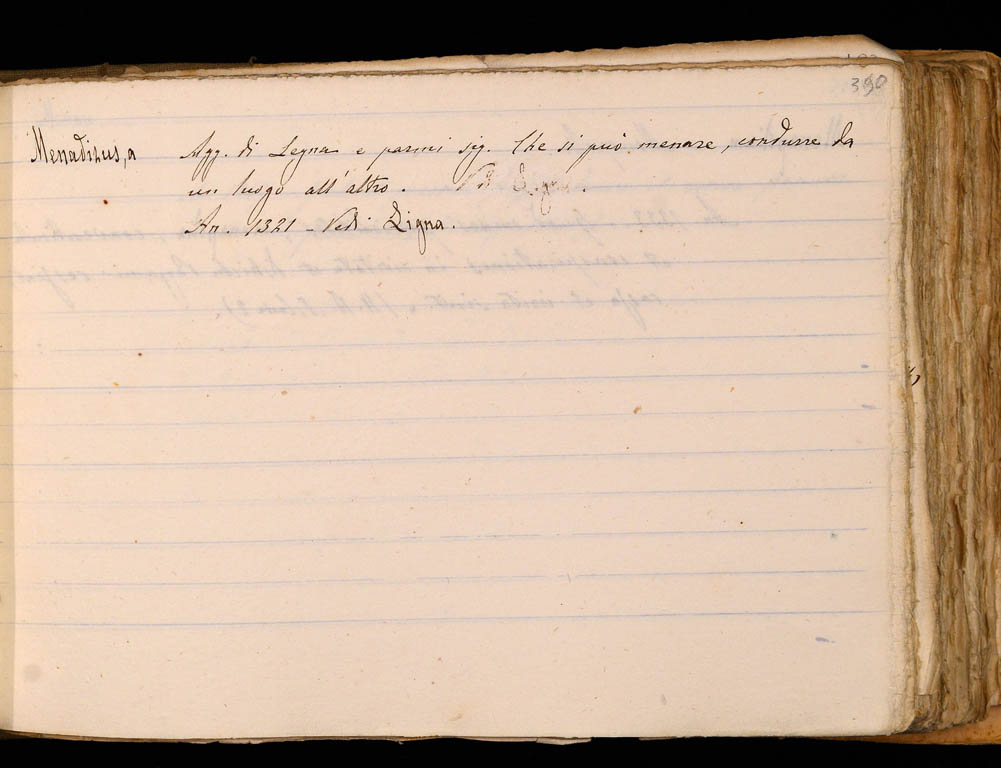 390
Menaditus, a Agg. di Legna e parmi sig. Che si può menare, condurre da
un luogo all'altro.
An. 1321 - Vedi Ligna.